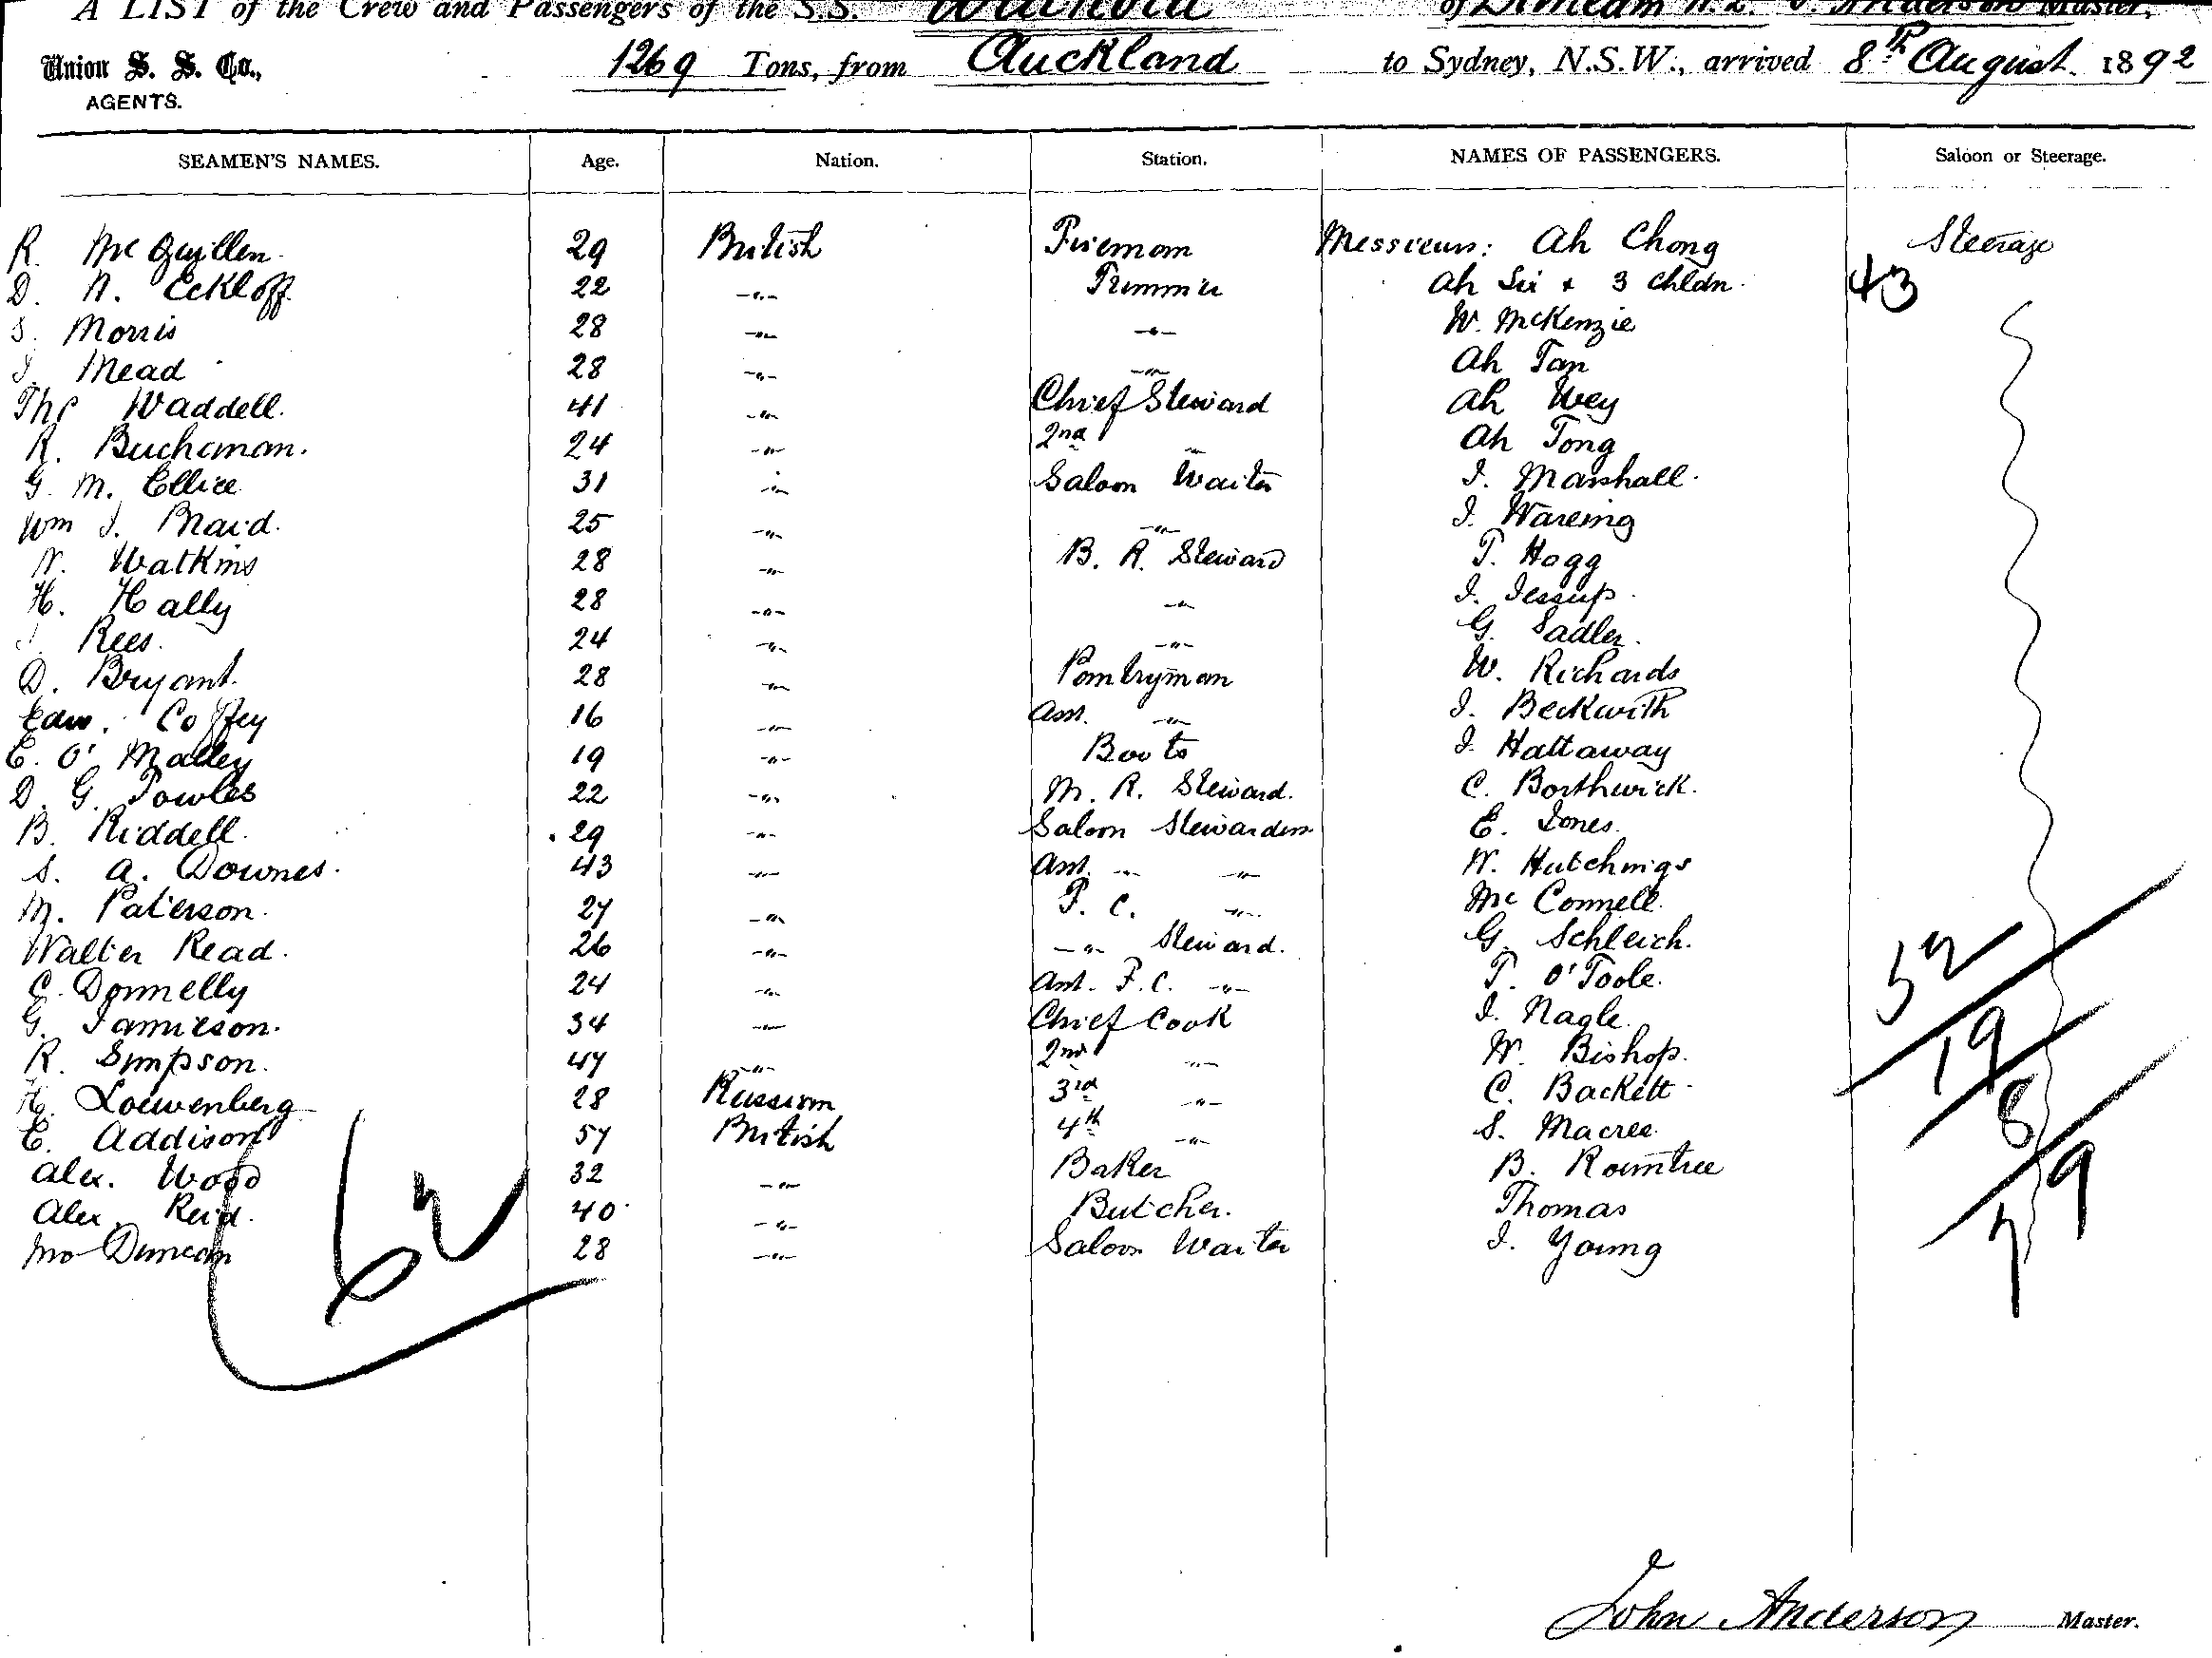 A LIST of the Crew and Passengers of the S.S. of N.Z. J. Anderson Master,
Union S. S. Co., 1269 Tons, from Auckland to Sydney, N.S.W., arrived 8th August 1892
AGENTS.
SEAMEN'S NAMES. Age. Nation. Station. NAMES OF PASSENGERS. Saloon or Steerage.
R. McQuillen 29 British Fireman Messieurs: Ah Chong Steerage
D. N. Eckloff 22 -"- Trimmer Ah Sii + 3 chldn. 43
S. Morris 28 -"- -"- W. McKenzie
J. Mead 28 -"- -"- Ah Tan
Thos Waddell. 41 -"- Chief Steward Ah Wey
R. Buchanan. 24 -"- 2nd -"- Ah Tong
G. M. Ellice 31 -"- Saloon Waiter J. Marshall.
Wm J. Braid. 25 -"- -"- J. Wareing
W. Watkins 28 -"- B. R. Steward T. Hogg
H. Hally 28 -"- -"- J. Jessup.
Rees. 24 -"- -"- G. Sadler.
D. Bryant. 28 -"- Pantryman W. Richards
Edw. Coffey 16 -"- Asst. -"- J. Beckwith
E. O'Malley 19 -"- Boots J. Hattaway
D. G. Powles 22 -"- M. R. Steward. C. Borthwick.
B. Riddell. 29 -"- Saloon Stewardess E. Jones.
S. A. Downes. 43 -"- Asst. -"- -"- W. Hutchings
M. Paterson. 27 -"- F. C. -"- McConnell.
Walter Read. 26 -"- -"- Steward. G. Schleich.
C. Donnelly 24 -"- Asst. F.C. -"- T. O'Toole. 52
G. Jamieson. 34 -"- Chief Cook J. Nagle.
R. Simpson. 47 -"- 2nd -"- W. Bishop. 19
H. Loewenberg 28 Russian 3rd -"- C. Backett
E. Addison 57 British 4th -"- S. Macree. 8
Alex. Wood 32 -"- Baker B. Rountree
Alex. Reid. 40 -"- Butcher. Thomas 79
Jno Duncan 28 -"- Saloon Waiter J. Young
62
John Anderson Master.